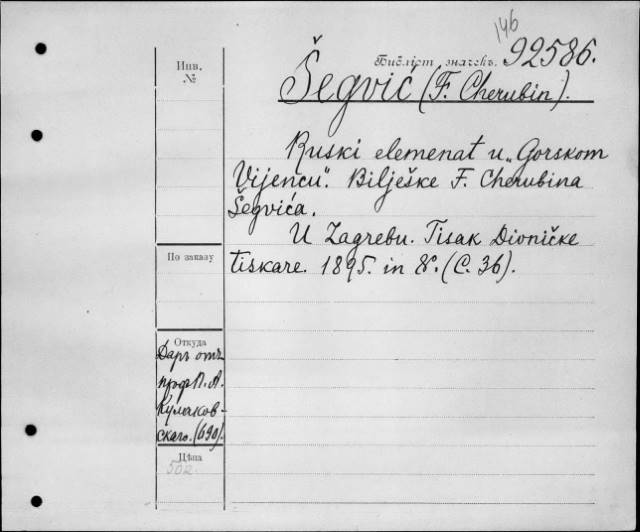 146
Инв.
№
Библіот. значекъ. 92586.
Šegvić (F. Cherubin).
Ruski elemenat u „Gorskom
Vijencu“. Bilješke F. Cherubina
Šegvića.
U Zagrebu. Tisak Dioničke
tiskare. 1895. in 8°. (C. 36).
По заказу
Откуда
Даръ отъ
проф П. А.
Кулаков-
скаго. (690).
Цѣна
502